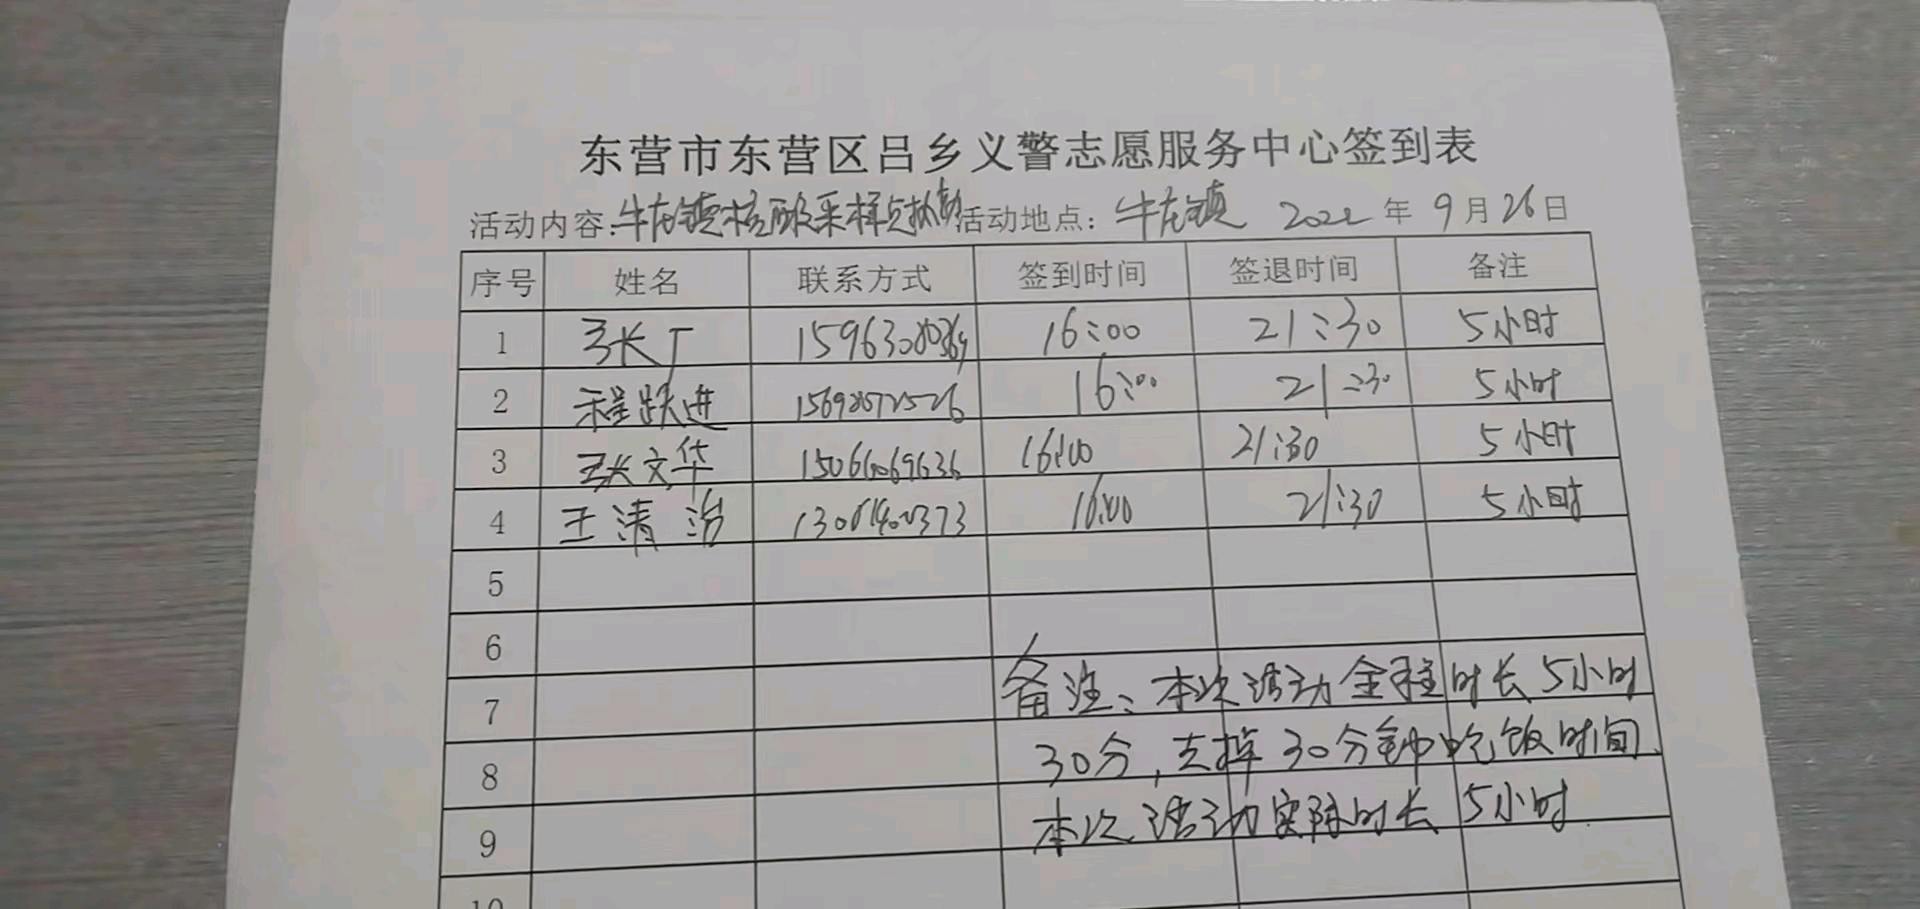 东营市东营区吕乡义警志愿服务中心签到表
活动内容:牛庄镇核酸采样点执勤 活动地点: 牛庄镇 2022 年 9 月 26 日
序号 姓名 联系方式 签到时间 签退时间 备注
1 长 16:00 21:30 5小时
2 程跃进 16:00 21:30 5小时
3 张文华 15066069636 16:00 21:30 5小时
4 王清 16:00 21:30 5小时
5
6
7 备注:本次活动全程时长5小时
8 30分,去掉30分钟吃饭时间.
9 本次活动实际时长5小时.
10